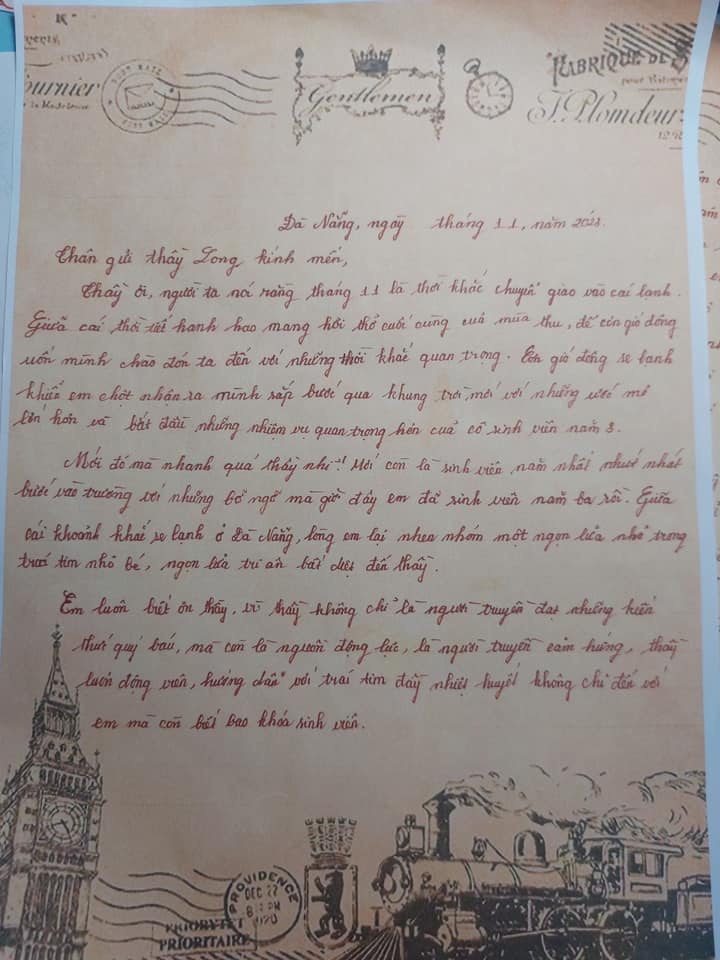 Fournier
POST MAIL
Gentlemen
FABRIQUE DE
J. Plomdeur
Đà Nẵng, ngày tháng 11, năm 2023.
Thân gửi thầy Long kính mến,
Thầy ơi, người ta nói rằng tháng 11 là thời khắc chuyển giao vào cái lạnh.
Giữa cái thời tiết hanh hao mang hơi thở cuối cùng của mùa thu, để cơn gió đông
uốn mình chào đón ta đến với những thời khắc quan trọng. Cơn gió đông se lạnh
khiến em chợt nhận ra mình sắp bước qua khung trời mới với những ước mơ
lớn hơn và bắt đầu những nhiệm vụ quan trọng hơn của cô sinh viên năm 3.
Mới đó mà nhanh quá thầy nhỉ?! Mới còn là sinh viên năm nhất nhút nhát
bước vào trường với những bỡ ngỡ mà giờ đây em đã sinh viên năm ba rồi. Giữa
cái khoảnh khắc se lạnh ở Đà Nẵng, lòng em lại nhen nhóm một ngọn lửa nhỏ trong
trái tim nhỏ bé, ngọn lửa tri ân bất diệt đến thầy.
Em luôn biết ơn thầy, vì thầy không chỉ là người truyền đạt những kiến
thức quý báu, mà còn là nguồn động lực, là người truyền cảm hứng, thầy
luôn động viên, hướng dẫn với trái tim đầy nhiệt huyết không chỉ đến với
em mà còn biết bao khóa sinh viên.
PROVIDENCE
DEC 27
1920
PRIORITAIRE